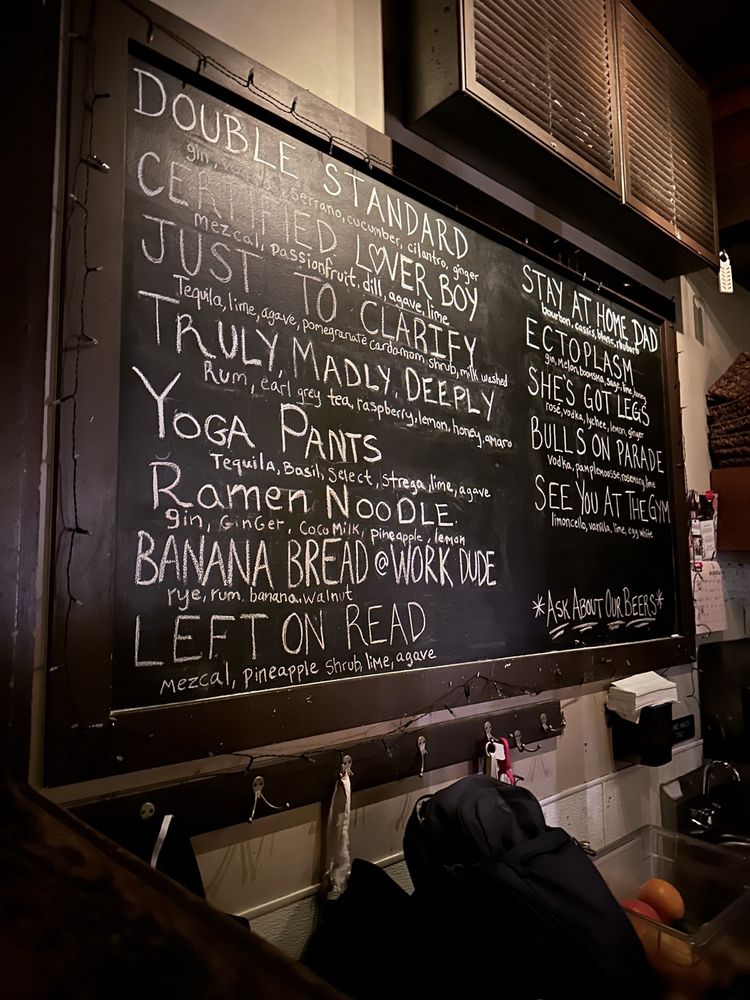 DOUBLE STANDARD
gin, serrano, cucumber, cilantro, ginger
CERTIFIED LOVER BOY
mezcal, passionfruit, dill, agave, lime
JUST TO CLARIFY
Tequila, lime, agave, pomegranate cardamom shrub, milk washed
TRULY, MADLY, DEEPLY
Rum, earl grey tea, raspberry, lemon, honey, amaro
YOGA PANTS
Tequila, Basil, Select, strega, lime, agave
Ramen NOODLE
gin, GinGer, Coco Milk, pineapple, lemon
BANANA BREAD @ WORK DUDE
rye, rum, banana, walnut
LEFT ON READ
mezcal, pineapple shrub, lime, agave
STAY AT HOME DAD
bourbon, cassis, blanc, rhubarb
ECTOPLASM
gin, melon, lime
SHE'S GOT LEGS
rosé, vodka, lychee, lemon, ginger
BULLS ON PARADE
vodka, pamplemousse, rosemary, lime
SEE YOU AT THE GYM
limoncello, vanilla, lime, egg white
*ASK ABOUT OUR BEERS*